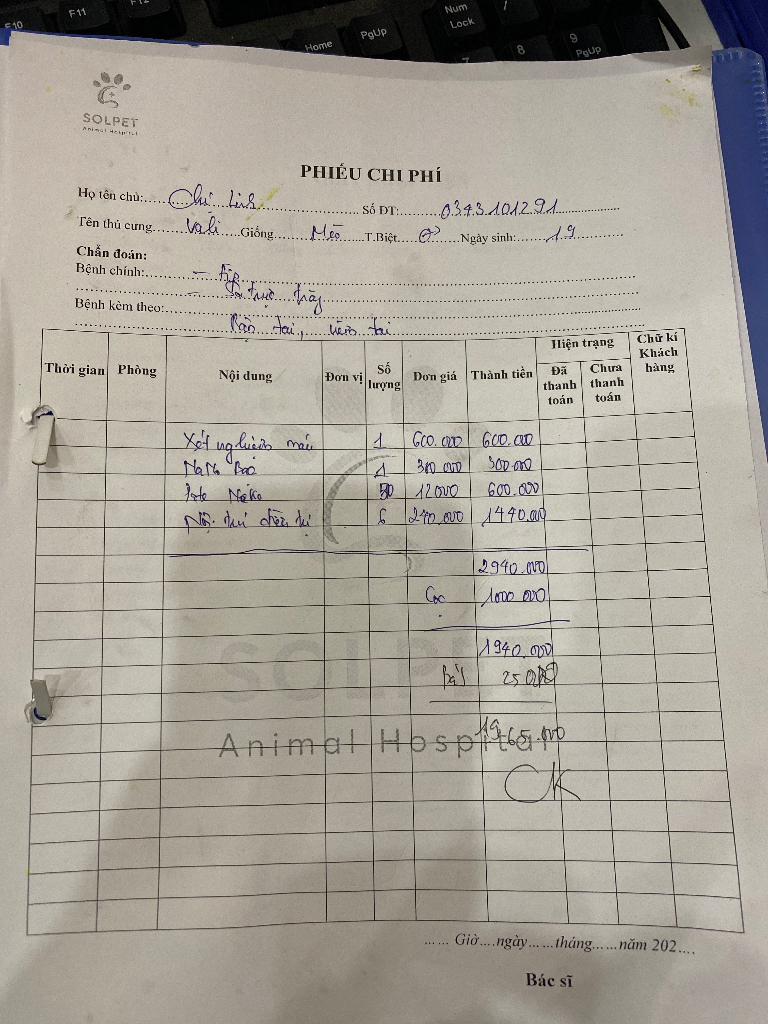 F10 F11 F12 Home PgUp Num Lock / 7 8 9 PgUp
SOLPET
Animal Hospital
PHIẾU CHI PHÍ
Họ tên chủ: Chị Linh Số ĐT: 0343101291
Tên thú cưng Vali Giống Mèo T.Biệt ♂ Ngày sinh: 19
Chẩn đoán:
Bệnh chính: - Fip
- Sa trực tràng
Bệnh kèm theo:
Rận tai, viêm tai
Thời gian Phòng Nội dung Đơn vị Số lượng Đơn giá Thành tiền Hiện trạng Đã thanh toán Chưa thanh toán Chữ kí Khách hàng
Xét nghiệm máu 1 600.000 600.000
Nano 1 300.000 300.000
Pate Neko 50 12000 600.000
Nội trú điều trị 6 240.000 1440.000
2940.000
Cọc 1000.000
1940.000
25.000
1965.000
CK
SOLPET
Animal Hospital
...... Giờ....ngày......tháng......năm 202....
Bác sĩ